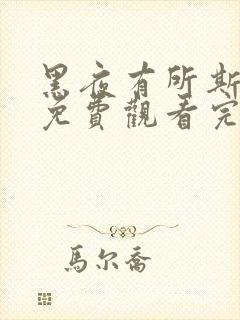 黑夜有所斯
免費觀看完
馬尔喬